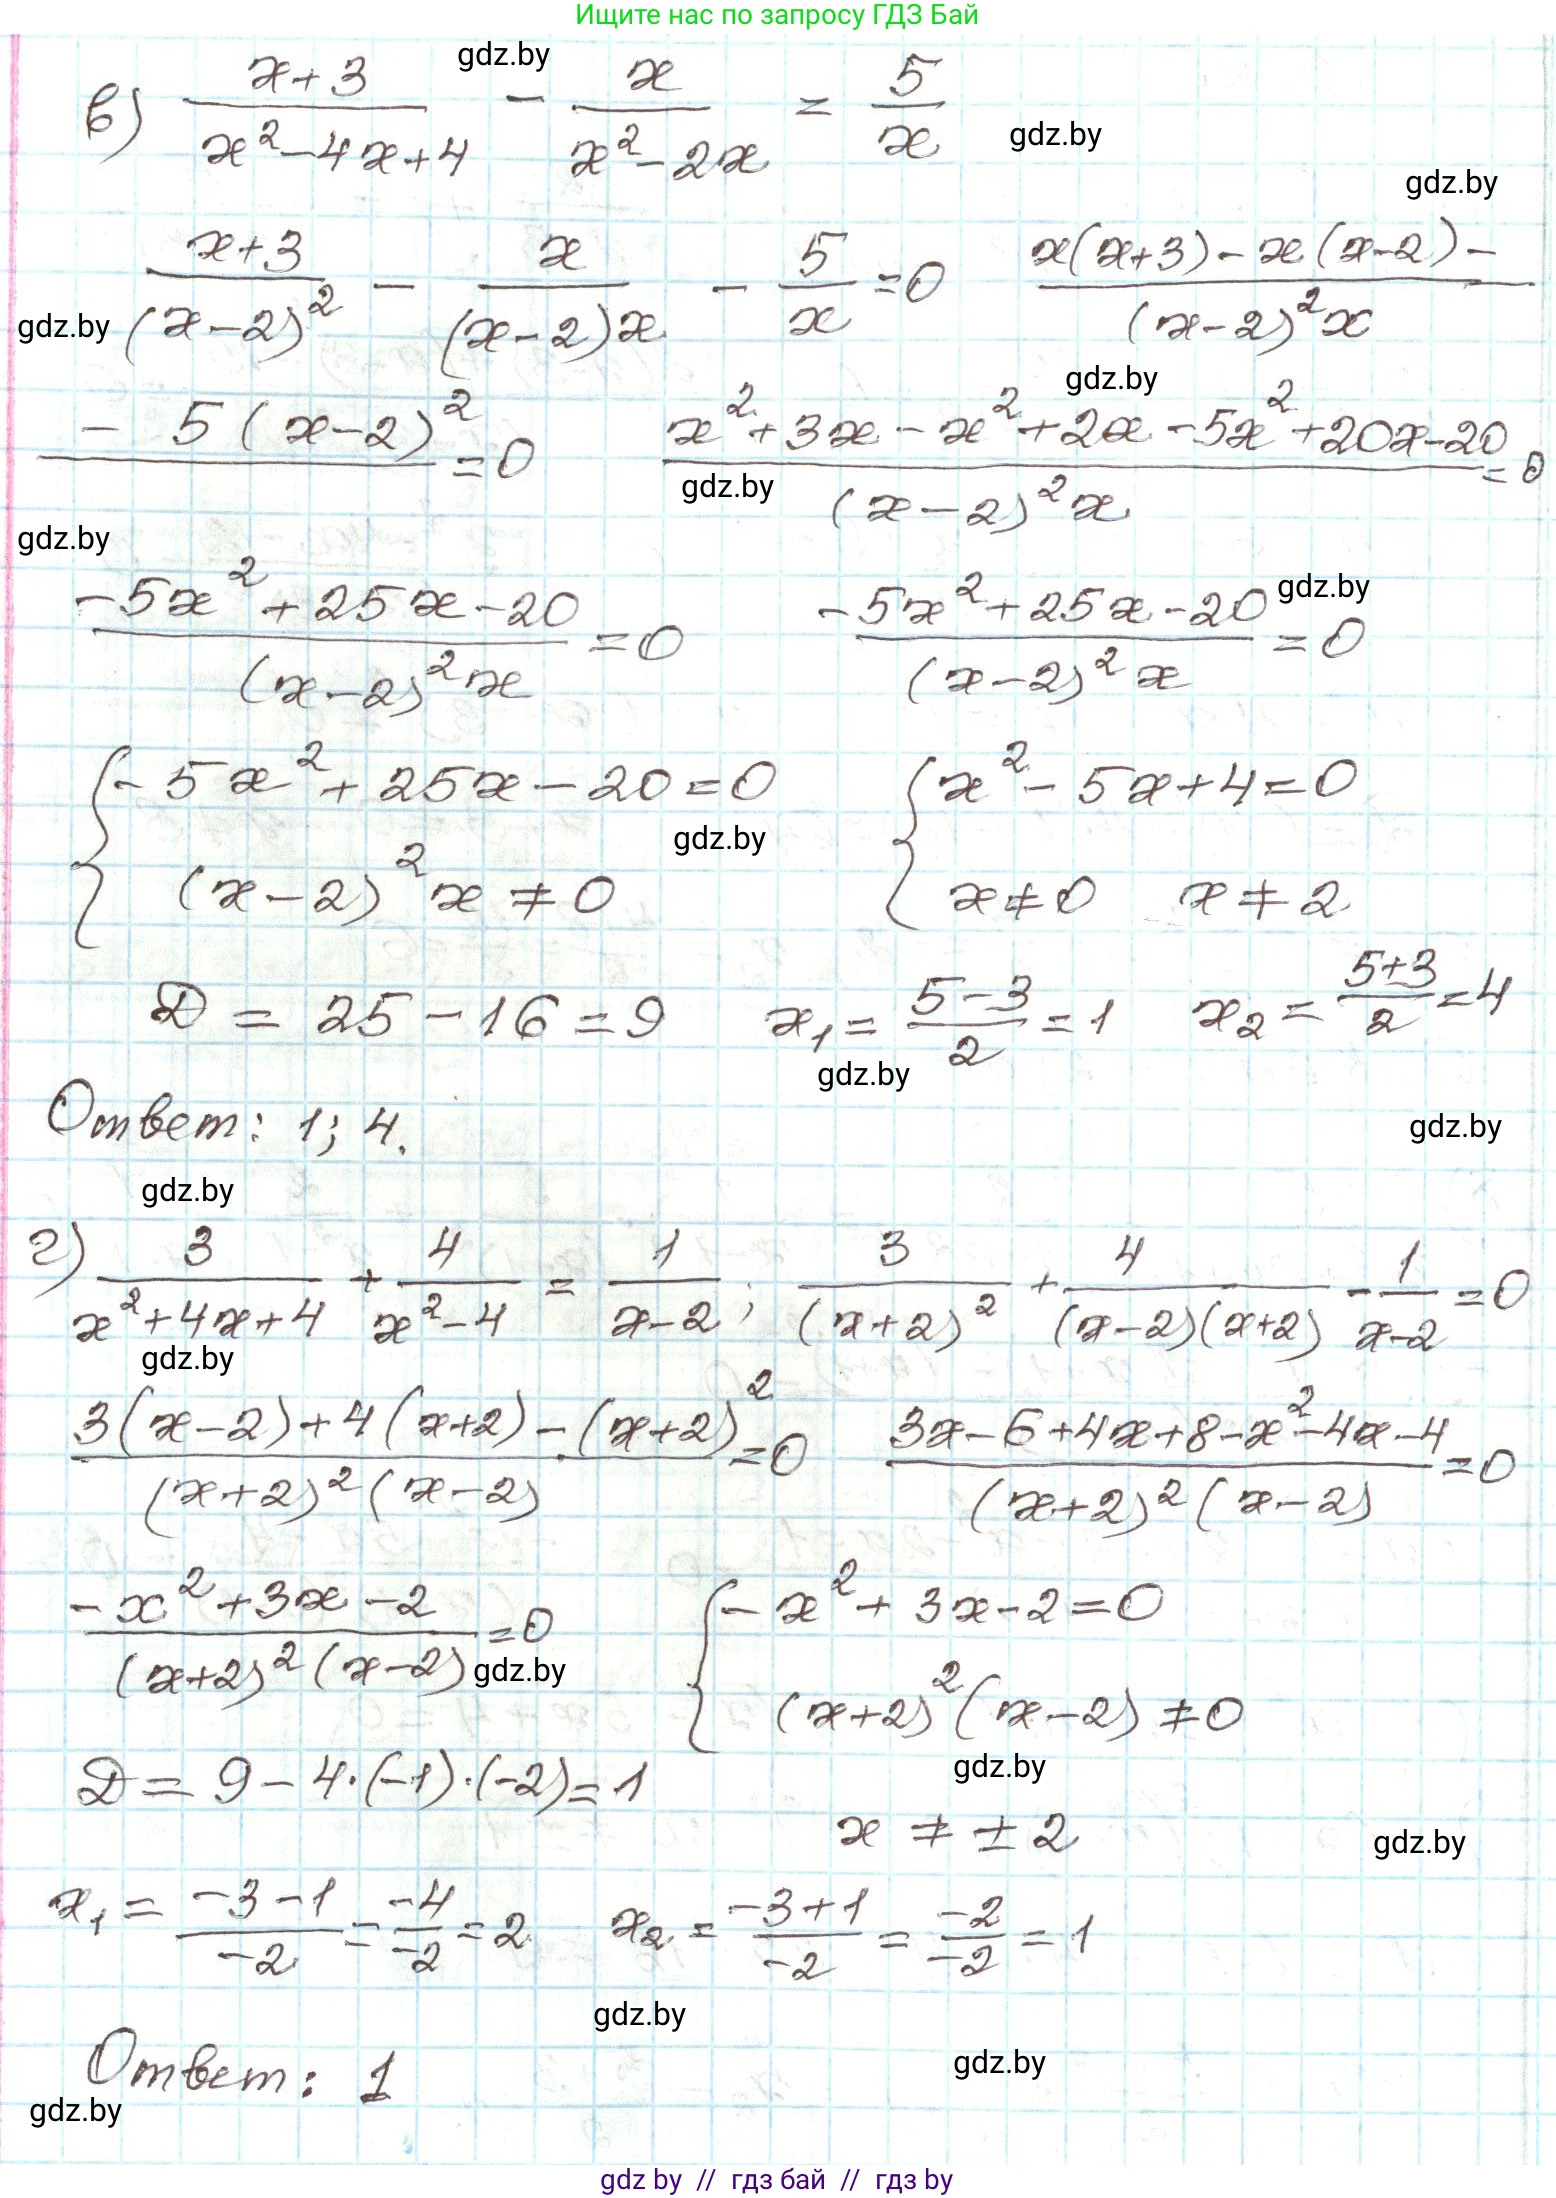 Ищите нас по запросу ГДЗ Бай
gdz.by
в) (x+3)/(x²-4x+4) - x/(x²-2x) = 5/x
gdz.by
gdz.by
(x+3)/(x-2)² - x/((x-2)x) - 5/x = 0   (x(x+3) - x(x-2) -)/((x-2)²x)
gdz.by
gdz.by
(- 5(x-2)²)/ = 0   (x²+3x-x²+2x-5x²+20x-20)/((x-2)²x) = 0
gdz.by
gdz.by
(-5x²+25x-20)/((x-2)²x) = 0   (-5x²+25x-20)/((x-2)²x) = 0
gdz.by
{ -5x²+25x-20=0   { x²-5x+4=0
gdz.by
(x-2)²x ≠ 0   x≠0   x≠2
D = 25-16=9   x₁ = (5-3)/2 = 1   x₂ = (5+3)/2 = 4
gdz.by
Ответ: 1; 4.
gdz.by
gdz.by
г) 3/(x²+4x+4) + 4/(x²-4) = 1/(x-2); 3/(x+2)² + 4/((x-2)(x+2)) - 1/(x-2) = 0
gdz.by
(3(x-2)+4(x+2)-(x+2)²)/((x+2)²(x-2)) = 0   (3x-6+4x+8-x²-4x-4)/((x+2)²(x-2)) = 0
(-x²+3x-2)/((x+2)²(x-2)) = 0   { -x²+3x-2=0
gdz.by
(x+2)²(x-2) ≠ 0
gdz.by
D = 9-4·(-1)·(-2)=1
x ≠ ±2
gdz.by
x₁ = (-3-1)/-2 = -4/-2 = 2   x₂ = (-3+1)/-2 = -2/-2 = 1
gdz.by
gdz.by
Ответ: 1
gdz.by
gdz by // гдз бай // гдз by